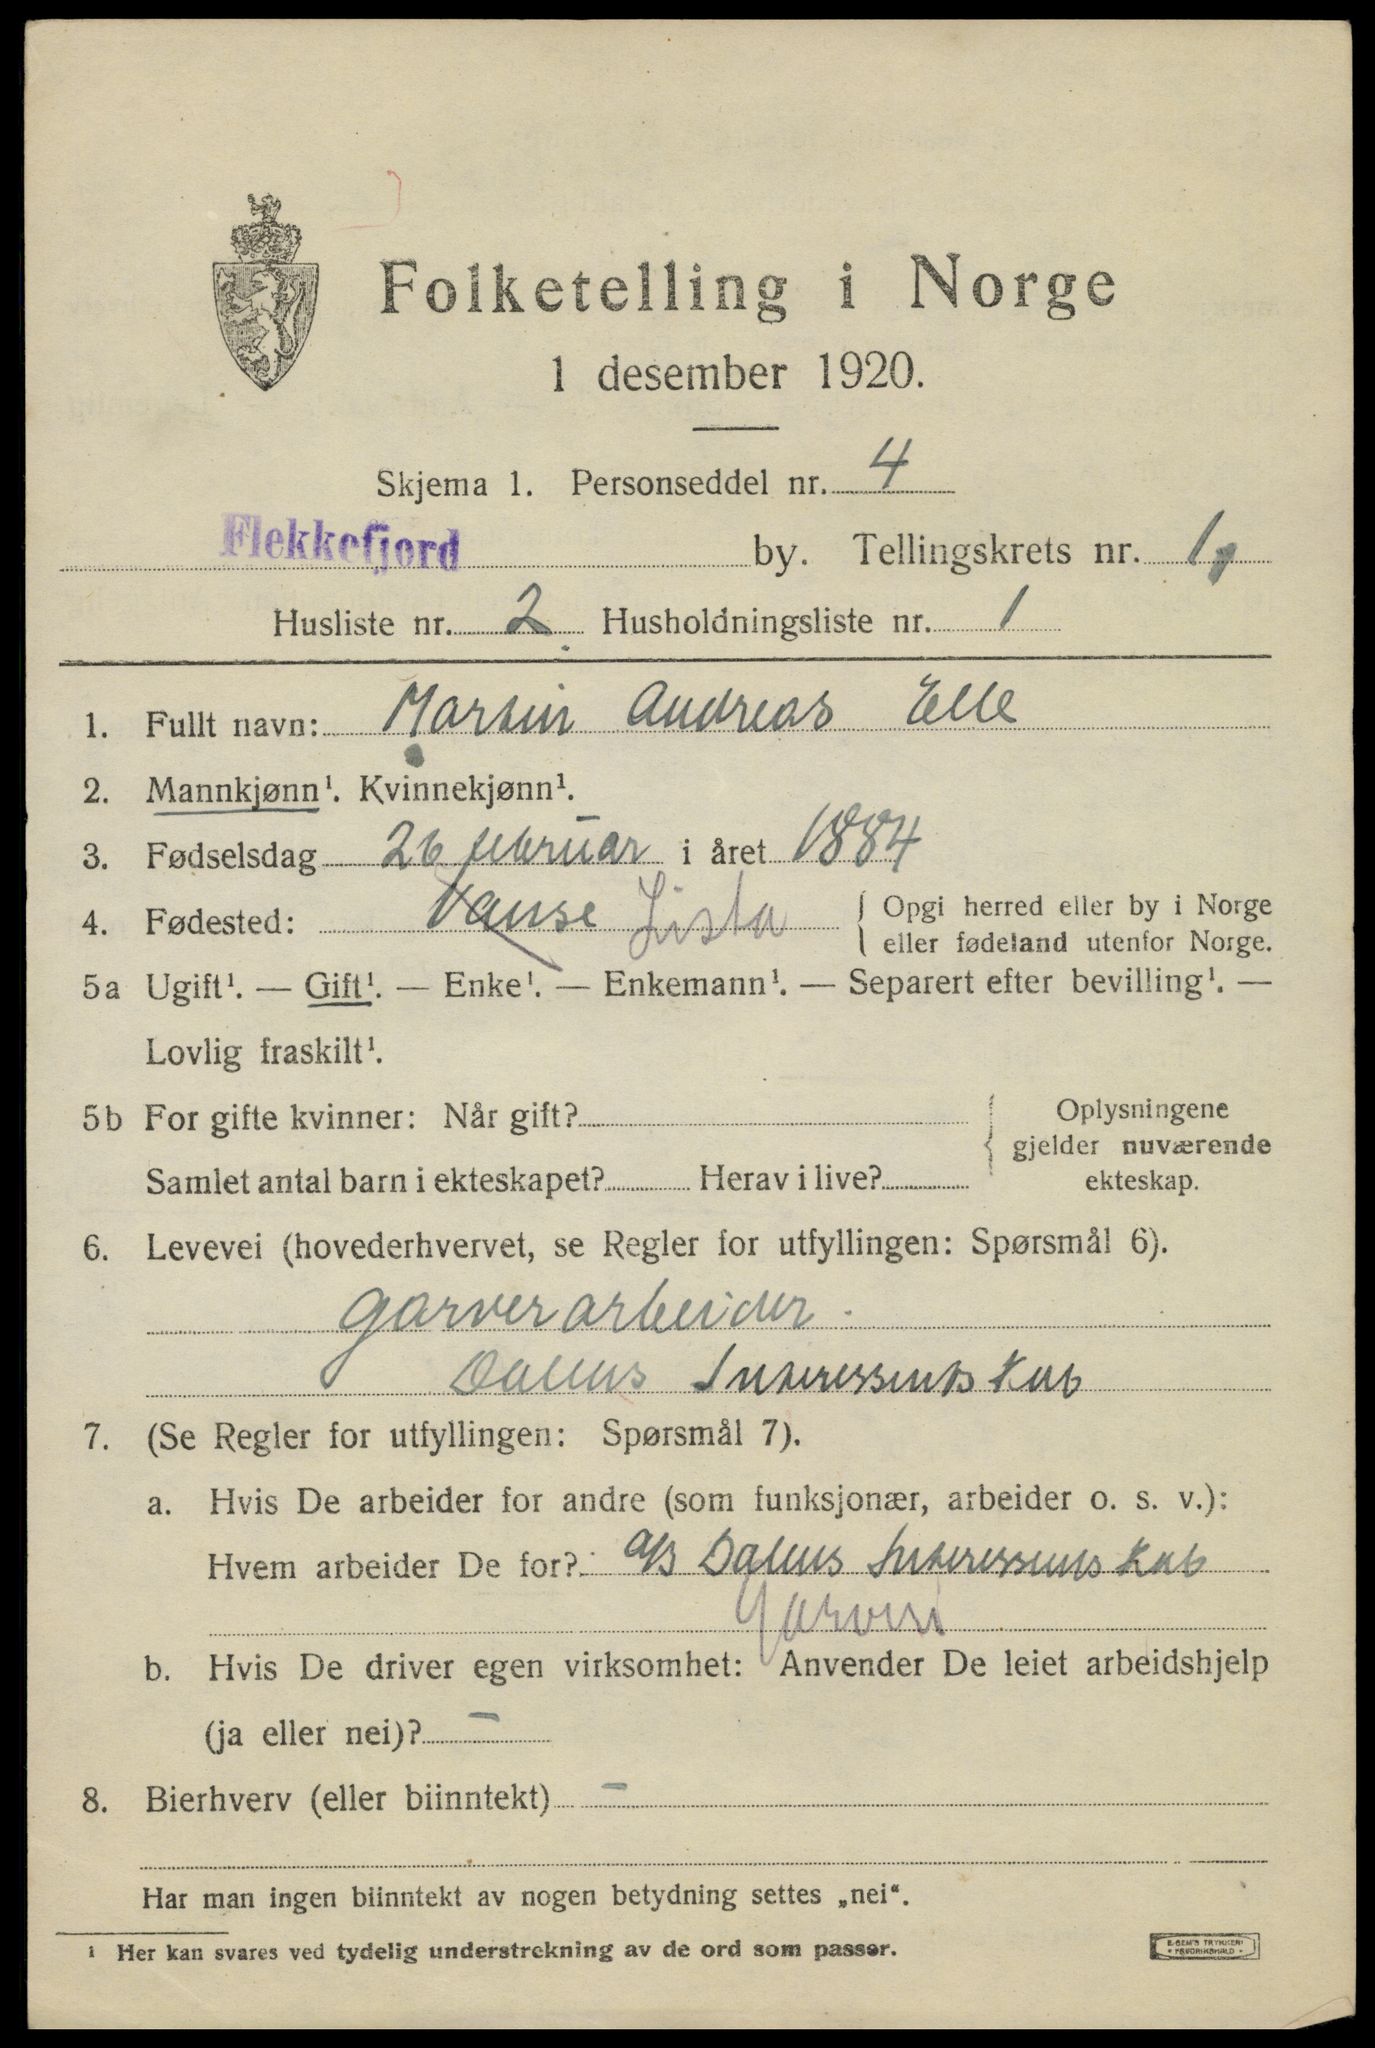 Folketelling i Norge
1 desember 1920.
Skjema 1. Personseddel nr. 4
Flekkefjord by. Tellingskrets nr. 1
Husliste nr. 2 Husholdningsliste nr. 1
1. Fullt navn: Martin Andreas Elle
2. Mannkjønn¹. Kvinnekjønn¹.
3. Fødselsdag 26 februar i året 1884
4. Fødested: Vanse Lista { Opgi herred eller by i Norge
eller fødeland utenfor Norge.
5a Ugift¹. — Gift¹. — Enke¹. — Enkemann¹. — Separert efter bevilling¹. —
Lovlig fraskilt¹.
5b For gifte kvinner: Når gift? { Oplysningene
gjelder nuværende
Samlet antal barn i ekteskapet? Herav i live? ekteskap.
6. Levevei (hovederhvervet, se Regler for utfyllingen: Spørsmål 6).
Garverarbeider.
Dalens Interessentskab
7. (Se Regler for utfyllingen: Spørsmål 7).
a. Hvis De arbeider for andre (som funksjonær, arbeider o. s. v.):
Hvem arbeider De for? a/s Dalens Interessentskab
Garveri
b. Hvis De driver egen virksomhet: Anvender De leiet arbeidshjelp
(ja eller nei)? —
8. Bierhverv (eller biinntekt) —
Har man ingen biinntekt av nogen betydning settes „nei“.
¹ Her kan svares ved tydelig understrekning av de ord som passer.
E. SEM'S TRYKKERI
FREDRIKSHALD